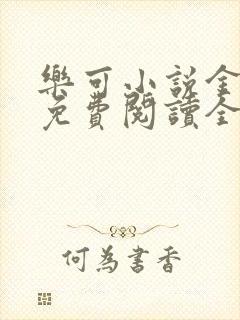 樂可小說全
免費閱讀全
何為書香